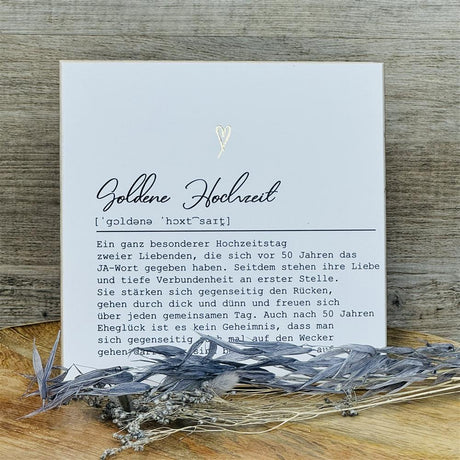 Goldene Hochzeit
[ˈɡɔldənə ˈhɔxt͡saɪt]
Ein ganz besonderer Hochzeitstag
zweier Liebenden, die sich vor 50 Jahren das
JA-Wort gegeben haben. Seitdem stehen ihre Liebe
und tiefe Verbundenheit an erster Stelle.
Sie stärken sich gegenseitig den Rücken,
gehen durch dick und dünn und freuen sich
über jeden gemeinsamen Tag. Auch nach 50 Jahren
Eheglück ist es kein Geheimnis, dass man
sich gegenseitig mal auf den Wecker
gehen